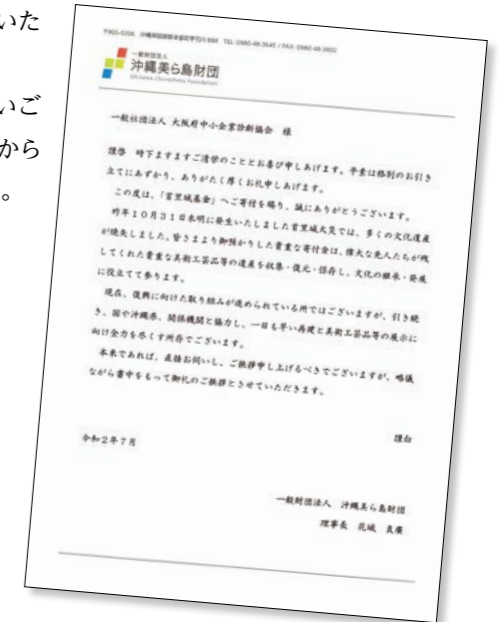 いた
いご
から
。
〒905-0206 沖縄県国頭郡本部町字石川888 TEL:0980-48-3645 / FAX:0980-48-3900
一般財団法人
沖縄美ら島財団
Okinawa Churashima Foundation
一般社団法人 大阪府中小企業診断協会 様
謹啓 時下ますますご清栄のこととお喜び申しあげます。平素は格別のお引き
立てにあずかり、ありがたく厚くお礼申しあげます。
この度は、「首里城基金」へご寄付を賜り、誠にありがとうございます。
昨年10月31日未明に発生いたしました首里城火災では、多くの文化遺産
が焼失しました。皆さまより御預かりした貴重な寄付金は、偉大な先人たちが残
してくれた貴重な美術工芸品等の遺産を収集・復元・保存し、文化の継承・発展
に役立てて参ります。
現在、復興に向けた取り組みが進められている所ではございますが、引き続
き、国や沖縄県、関係機関と協力し、一日も早い再建と美術工芸品等の展示に
向け全力を尽くす所存でございます。
本来であれば、直接お伺いし、ご挨拶申し上げるべきでございますが、略儀
ながら書中をもって御礼のご挨拶とさせていただきます。
謹白
令和2年7月
一般財団法人 沖縄美ら島財団
理事長 花城 良廣